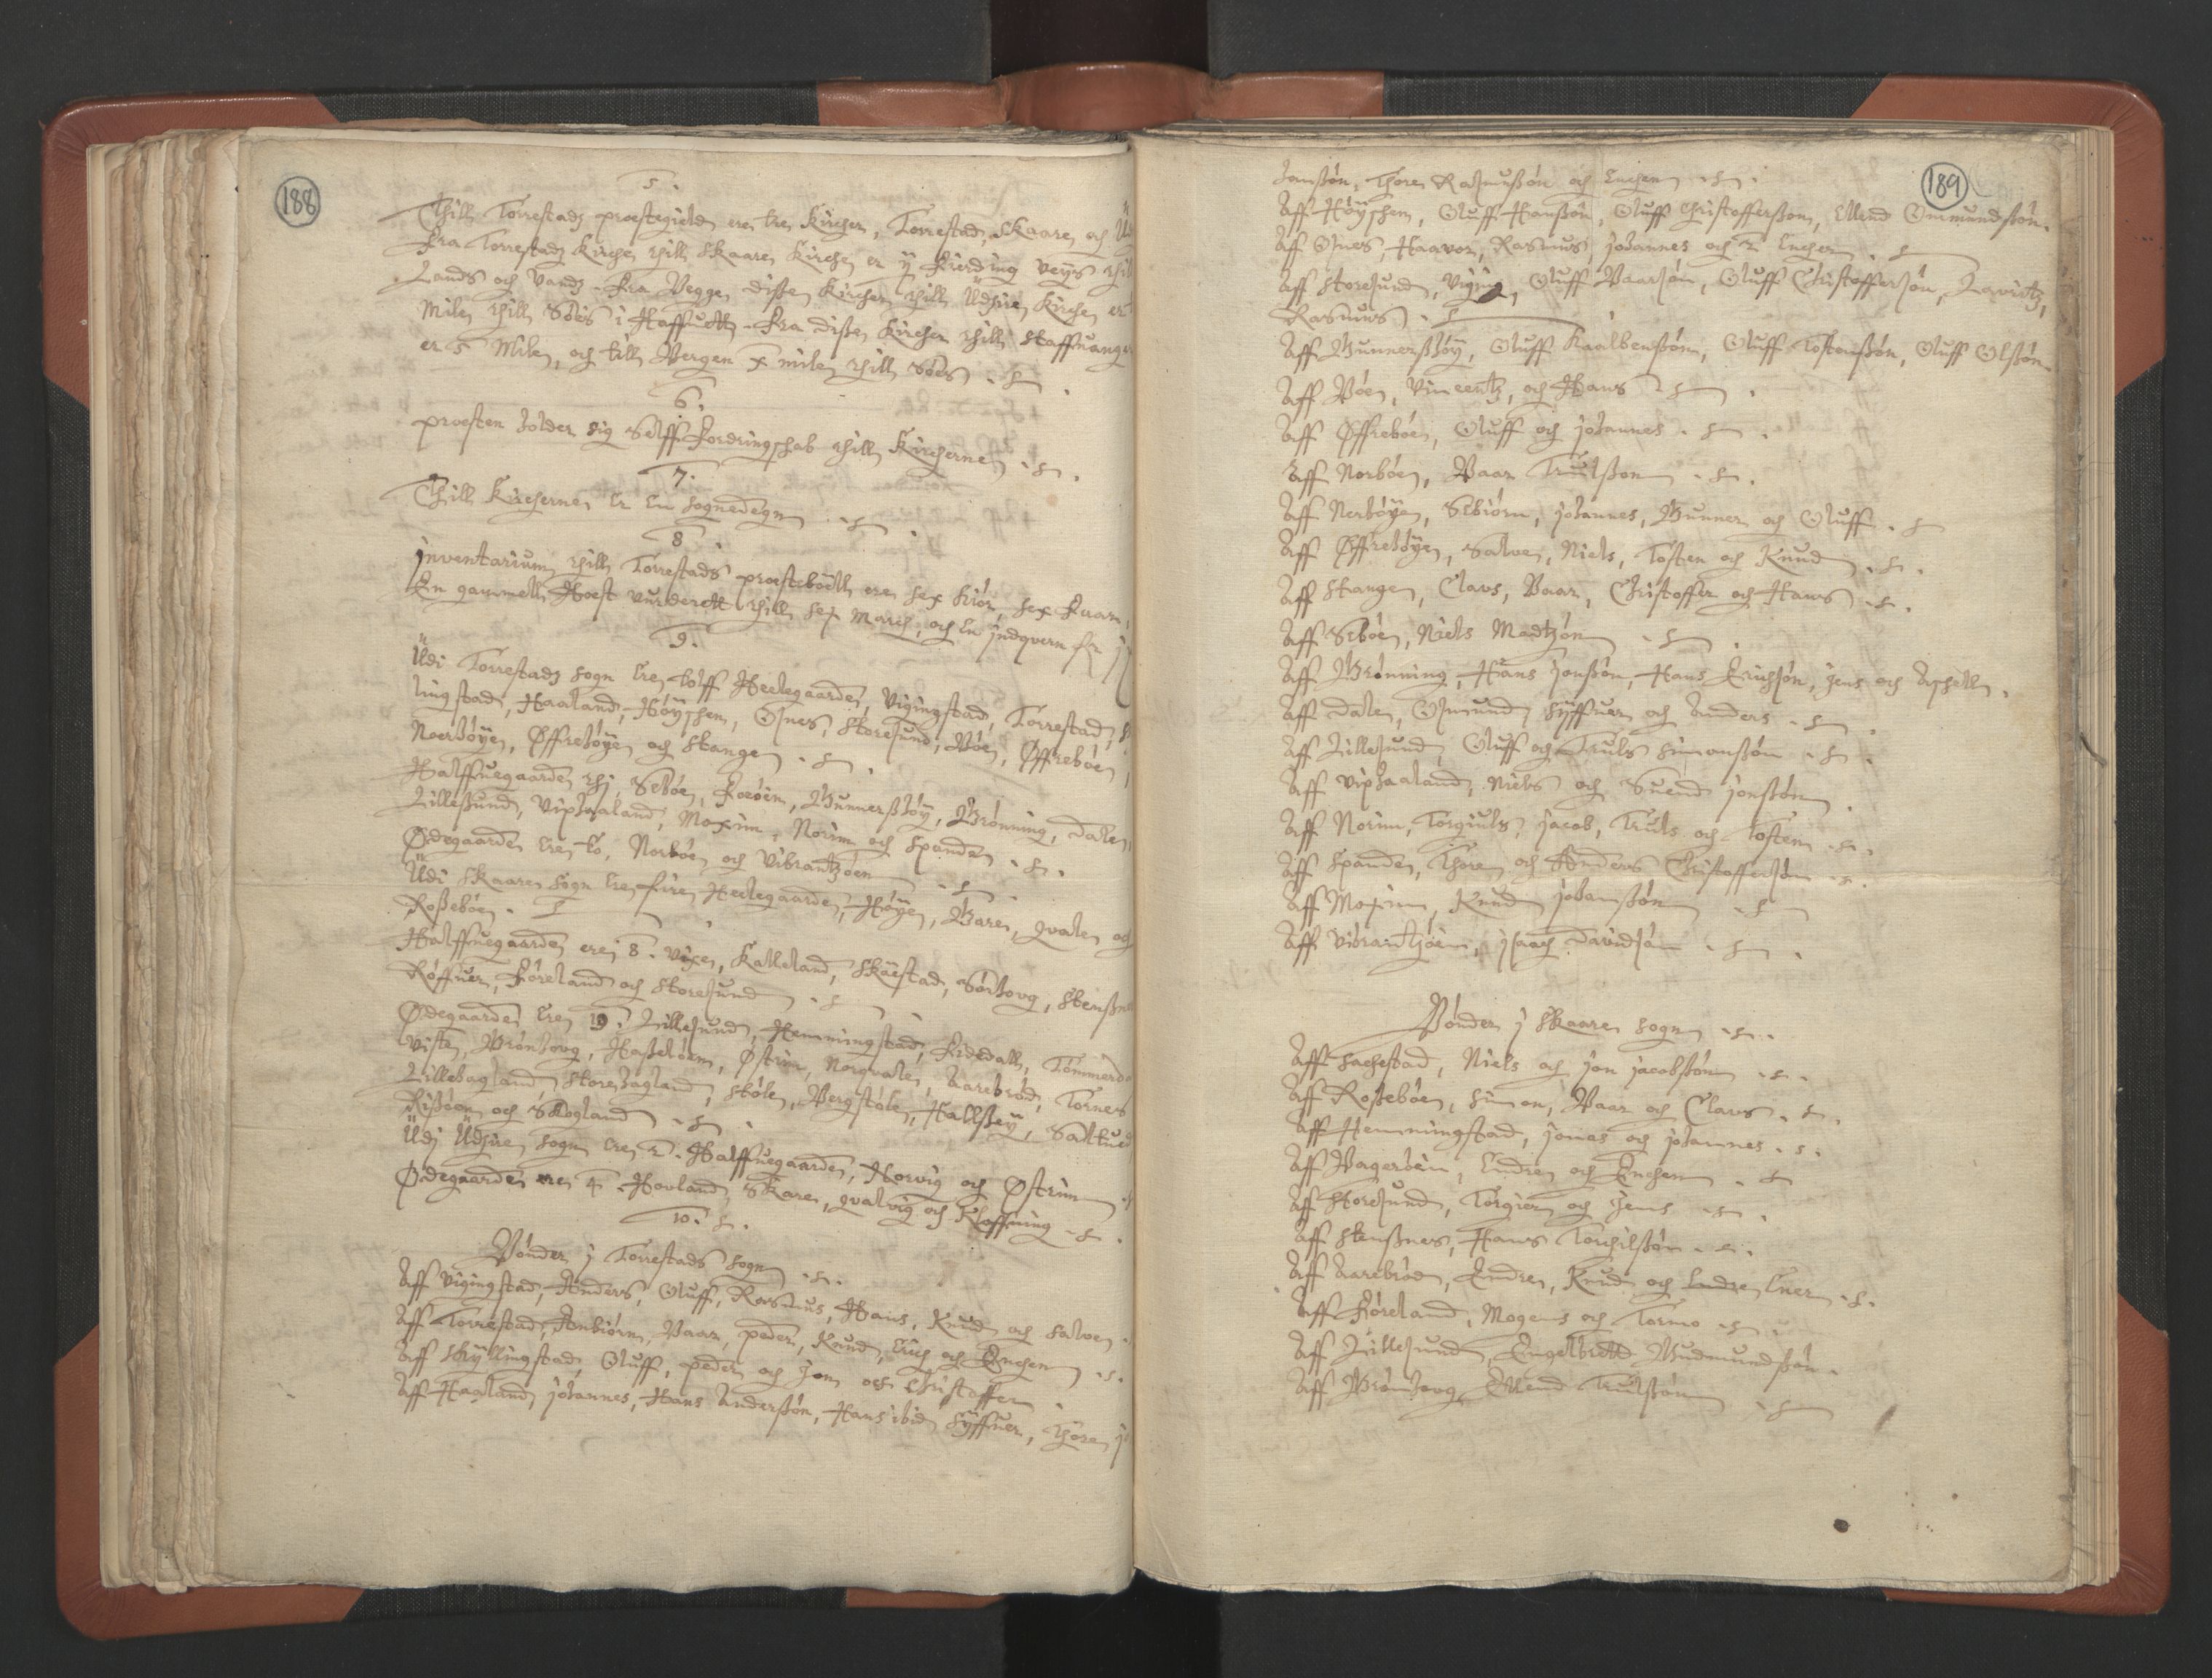 188
5.
Thill Torrestads prestegield ere tre Kircher, Torrestad, Skaare, och
Fra Torrestads Kirche thill Skaare Kirche er ij fierding veys
Lands och Vands. Fra Begge diße Kircher thill Üdsire Kirche er
Mile thill Söes i Haffuett. Fra diße Kircher thill Staffuanger
er 5 Mile, och till Bergen x mile thill Söes
6.
presten holder sig Selff fordringschab thill Kircherne
7.
Thill Kircherne er en Sognedegn
8
inventarium thill Torrestads prestebolle ere sex kiör, sex Faar,
En gammell Hæst vurderett thill sex March, och en jndqvern for
9.
Üdi Torrestads sogn ere tolff Heelegaarde, Vigingstad, Torrestad,
lingstad, Haaland, Höyschen, Osnes, Storesund, Böe, Øffreböe,
Noerhöye, Øffrehöye och Stange
Halffuegaarde thj, Seböe, Fœöen, Gunnershöy, Brönning, Dale,
Lillesund, Viphaaland, Moxim, Norim och Spanden
Ødegaarde ere to, Norböe och Vibrantzöen
Üdi Skaare Sogn ere fire Heelegaarde, Höye, Gare, qvale och
Roßeböe.
Halffuegaarde ere 8. Vixe, Kalleland, Skaestad, Sörhoug, Stensnes
Röffuer, Föreland och Storesund
Ødegaarde ere 19. Lillesund, Hemmingstad, Fidedall,
Viste, Brönhoug, Haßelöen, Østrim, Norqvale, Aarebröd, Tornes
Lillehagland, Storehagland, Stöle, Bergstöle, Hallsey,
Rißöen och Skogland
Üdj Üdsire sogn ere 2. Halffuegaarde, Norvig och Østrim
Ødegaarde ere 4. Hovland, Skare, qvalvig och Kloffning
10.
Bönder j Torrestads sogn
Aff Vigingstad, Anders, Oluff, Rasmus, Hans, Knud och Salve
Aff Torrestad, Anbiörn, Baar, peder, Knud, Erich och Enchen
Aff Schyllingstad, Oluff, peder och Jon och Christoffer
Aff Haaland, johannes, Hans Anderßön, Hans ibid Syffuer, Thore
189
Jonßön, Thore Rasmußön och Enchen
Aff Höyschen, Oluff Hanßön, Oluff Christofferßön, Ellend Ommundßön.
Aff Osnes, Haavor, Rasmus, johannes och 2 Encher
Aff Storesund, Viging, Oluff Baarsön, Oluff Christoffersön, Lavritz,
Rasmus
Aff Gunnershöy, Oluff Kaalbenßön, Oluff Tostenßön, Oluff Olßön.
Aff Böe, Vincentz, och Hans
Aff Øffreböe, Oluff och johannes
Aff Norböe, Baar Trulßön
Aff Nerhöye, Sebiörn, johannes, Gunner och Oluff
Aff Øffrehöye, Salve, Niels, Tosten och Knud
Aff Stange, Claus, Baar, Christoffer och Hans
Aff Seböe, Niels Madtzön
Aff Brönning, Hans Jonßön, Hans Erichsön, Jens och Aschell
Aff Dale, Osmund, Syffuer och Anders
Aff Lillesund, Oluff och Truls Simonßön
Aff Viphaaland, Niels och Suend jonßön
Aff Norim, Torgiuls, jacob, Truls och Tosten
Aff Spanden, Thore och Anders Christoffersön
Aff Moxim, Knud johanßön
Aff Vibrantzöen, jsaach Davidsön
Bönder j Skaare sogn
Aff Sachestad, Niels och jon jacobßön
Aff Roßeböe, Simon, Baar och Claus
Aff Hemmingstad, jonas och johannes
Aff Vageröen, Endre och Enchen
Aff Storesund, Torgier och Jens
Aff Stensnes, Hans Torchilßön
Aff Aarebröd, Endre, Knud och Endre Ener
Aff Föreland, Mogens och Tormo
Aff Lillesund, Engelbrett Gudmundßön
Aff Brönhoug, Ellend Trulßön